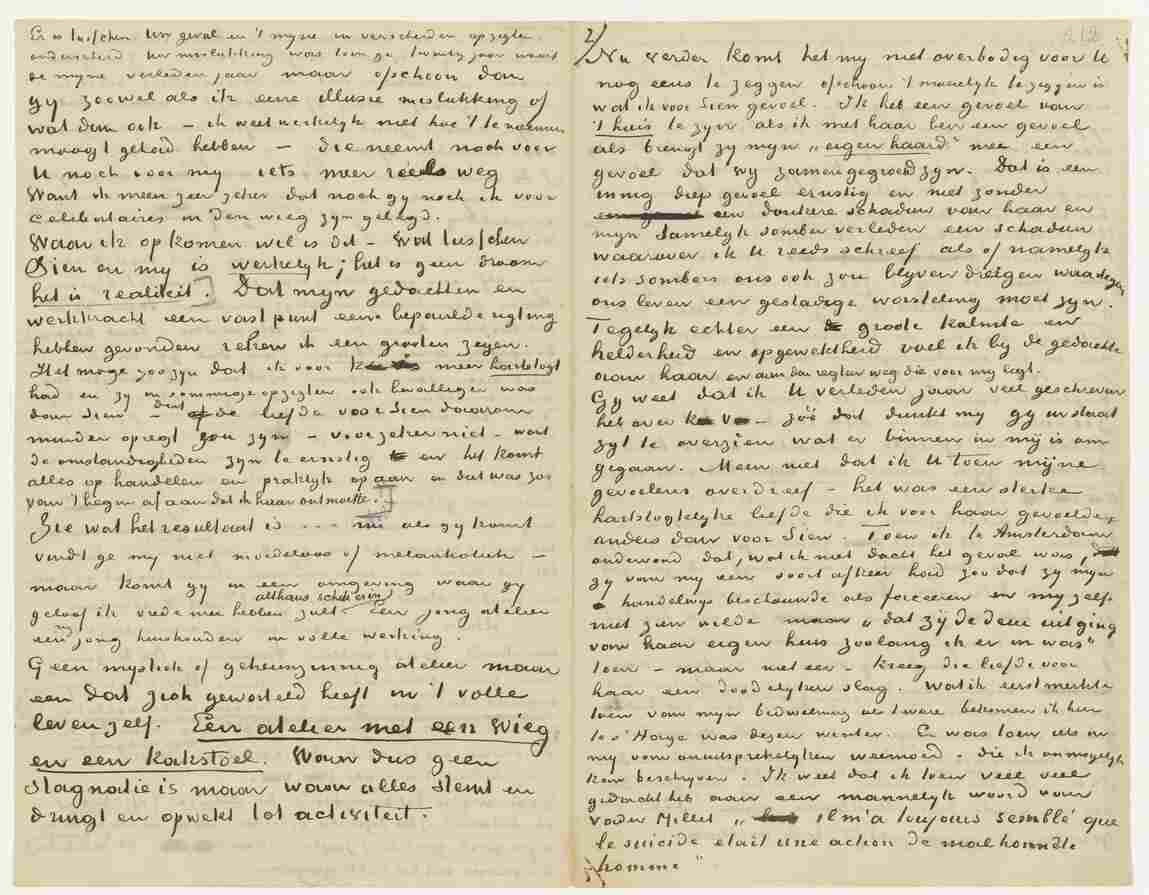 Er is tusschen Uw geval en 't mijne in verscheiden opzigten
onderscheid Uw mislukking was toen ge twintig jaar waart
de mijne verleden jaar maar ofschoon dan
gy zoowel als ik eene illusie mislukking of
wat dan ook — ik weet werkelyk niet hoe 't te noemen
moogt gehad hebben — die neemt noch voor
U noch voor my iets meer reëels weg
Want ik meen zeer zeker dat noch gy noch ik voor
celebataires in den wieg zyn gelegd.
Waar ik op komen wil is dit — Wat tusschen
Sien en my is is werkelyk; het is geen droom
het is realiteit. Dat myn gedachten en
werkkracht een vast punt eene bepaalde rigting
hebben gevonden reken ik een grooten zegen.
Het moge zoo zyn dat ik voor meer hartstogt
had en zy in sommige opzigten ook bevalliger was
dan Sien — dat de liefde voor Sien daarom
minder opregt zou zyn — voorzeker niet — want
de omstandigheden zyn te ernstig en het komt
alles op handelen en praktyk op aan en dat was zoo
van 't begin af aan dat ik haar ontmoette.
Zie wat het resultaat is ... nu als gy komt
vindt ge my niet moedeloos of melankoliek —
maar komt gy in een omgeving waar gy
althans scheveningen
geloof ik vrede mee hebben zult Een jong atelier
een jong huishouden in volle werking.
Geen mystiek of geheimzinnig atelier maar
een dat zich geworteld heeft in 't volle
leven zelf. Een atelier met een wieg
en een kakstoel. Waar dus geen
stagnatie is maar waar alles stemt en
dringt en opwekt tot activiteit.
2/ 212
Nu verder komt het my niet overbodig voor U
nog eens te zeggen ofschoon 't moeielyk te zeggen is
wat ik voor Sien gevoel. Ik heb een gevoel van
't huis te zyn als ik met haar ben een gevoel
als brengt zy myn „eigen haard" mee een
gevoel dat wy zamengegroeid zyn. Dat is een
innig diep gevoel ernstig en niet zonder
een donkere schaduw van haar en
myn tamelyk somber verleden een schaduw
waarover ik U reeds schreef als of namelyk
iets sombers ons ook zou blyven dreigen waartegen
ons leven een gestadige worsteling moet zyn.
Tegelyk echter een groote kalmte en
helderheid en opgewektheid voel ik by de gedachte
aan haar en aan den regten weg die voor my ligt.
Gy weet dat ik U verleden jaar veel geschreven
heb over K. V. — zoó dat dunkt my gy in staat
zyt te overzien wat er binnen in mij is om
gegaan. Meen niet dat ik U toen mijne
gevoelens overdreef — het was een sterke
hartstogtelyke liefde die ik voor haar gevoelde
anders dan voor Sien. Toen ik te Amsterdam
ondervond dat, wat ik niet dacht het geval was,
zy van my een soort afkeer had zoo dat zy myn
handelwys beschouwde als forceeren en my zelfs
niet zien wilde maar „dat zij de deur uitging
van haar eigen huis zoolang ik er in was"
toen — maar niet eer — kreeg die liefde voor
haar een doodelyken slag. Wat ik eerst merkte
toen van myn bedwelming als't ware bekomen ik hier
te s'Hage was dezen winter. Er was toen iets in
my van onuitsprekelyken weemoed. die ik onmogelyk
kan beschryven. Ik weet dat ik toen veel veel
gedacht heb aan een mannelyk woord van
vader Millet „ il m'a toujours semblé que
le suicide etait une action de malhonnête
homme".